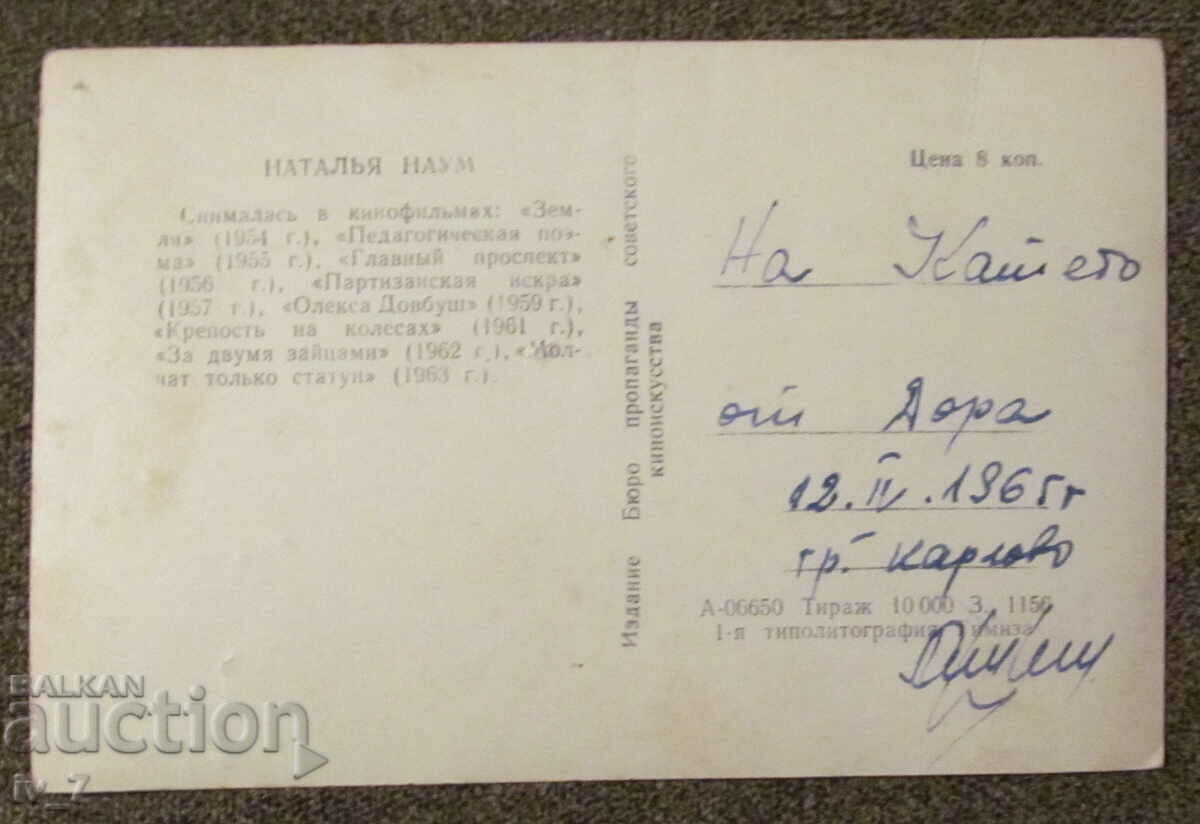 НАТАЛЬЯ НАУМ
Снималась в кинофильмах: «Зем-
ля» (1954 г.), «Педагогическая поэ-
ма» (1955 г.), «Главный проспект»
(1956 г.), «Партизанская искра»
(1957 г.), «Олекса Довбуш» (1959 г.),
«Крепость на колесах» (1961 г.),
«За двумя зайцами» (1962 г.), «Мол-
чат только статуи» (1963 г.).
Издание Бюро пропаганды советского
киноискусства
Цена 8 коп.
На Катето
от Дора
12.II.1965 г
гр. Карлово
А-06650 Тираж 10 000 З. 1156
1-я типолитография
BALKAN
auction
iv_7